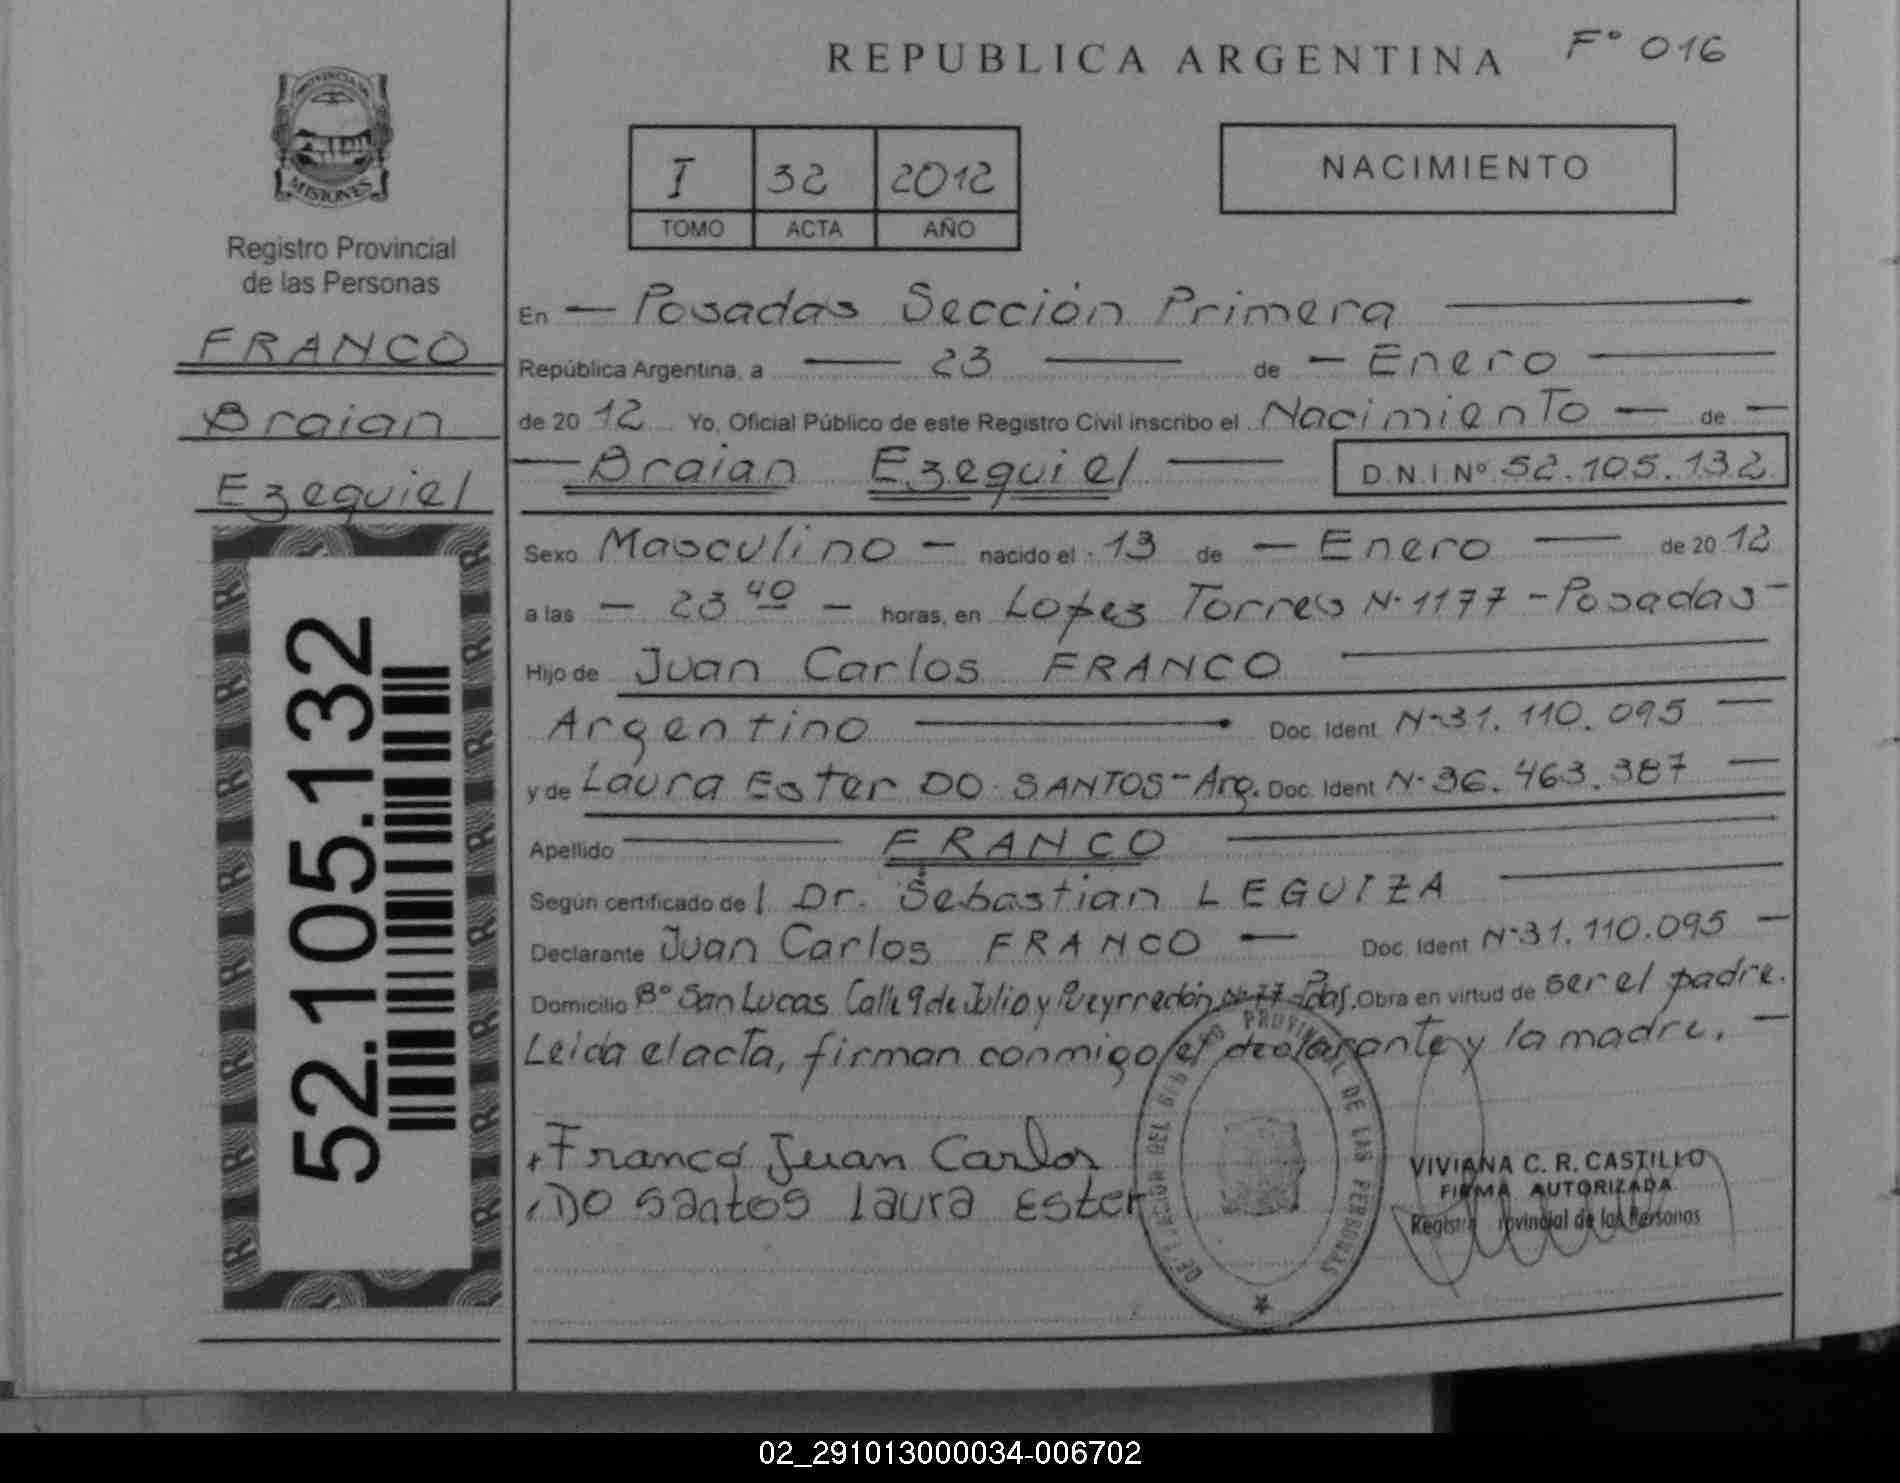 REPUBLICA ARGENTINA
F° 016
PROVINCIA DE
MISIONES
Registro Provincial
de las Personas
FRANCO
Braian
Ezequiel
52.105.132
I 32 2012
TOMO ACTA AÑO
NACIMIENTO
En — Posadas Sección Primera —
República Argentina, a — 23 — de — Enero —
de 20 12 Yo, Oficial Público de este Registro Civil inscribo el Nacimiento — de —
— Braian Ezequiel — D.N.I. Nº 52.105.132
Sexo Masculino — nacido el 13 de — Enero — de 20 12
a las — 23 40 — horas, en Lopez Torres N° 1177 - Posadas -
Hijo de Juan Carlos FRANCO —
Argentino — Doc. Ident. N° 31.110.095 —
y de Laura Ester DO SANTOS - Arg. Doc. Ident. N° 36.463.387 —
Apellido — FRANCO —
Según certificado del Dr. Sebastian LEGUIZA —
Declarante Juan Carlos FRANCO — Doc. Ident. N° 31.110.095 —
Domicilio B° San Lucas Calle 9 de Julio y Pueyrredón N° 77 Pdas. Obra en virtud de ser el padre.
Leida el acta, firman conmigo el declarante y la madre. —
Franco Juan Carlos
Do Santos Laura Ester
PROVINCIAL DE LAS PERSONAS
VIVIANA C. R. CASTILLO
FIRMA AUTORIZADA
Registro Provincial de las Personas
02_291013000034-006702